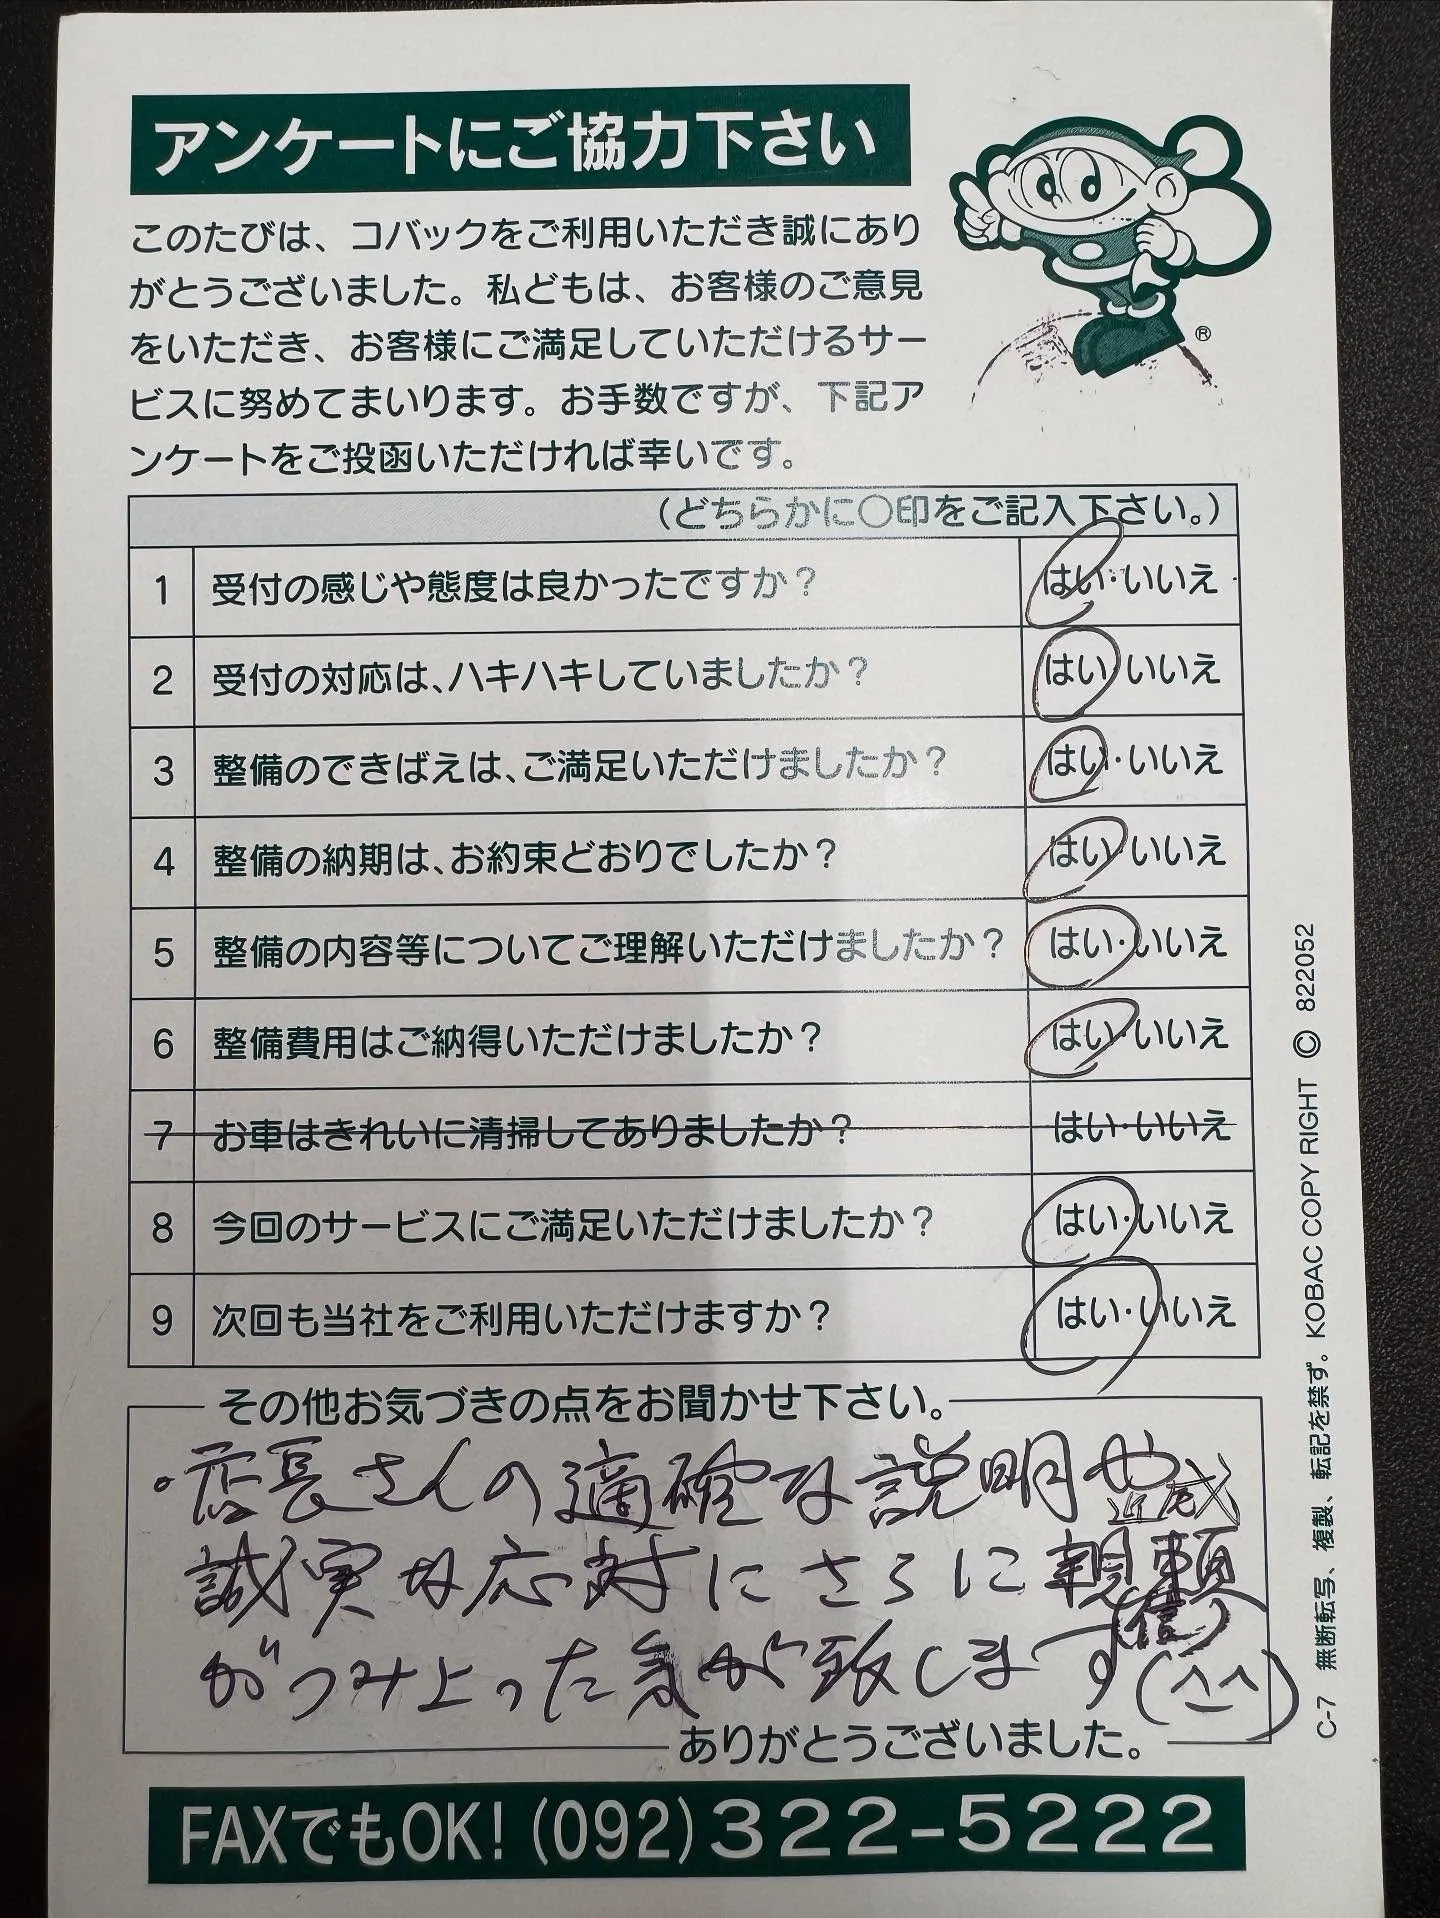 アンケートにご協力下さい
このたびは、コバックをご利用いただき誠にあり
がとうございました。私どもは、お客様のご意見
をいただき、お客様にご満足していただけるサー
ビスに努めてまいります。お手数ですが、下記ア
ンケートをご投函いただければ幸いです。
®
(どちらかに〇印をご記入下さい。)
1 受付の感じや態度は良かったですか? はい・いいえ
2 受付の対応は、ハキハキしていましたか? はい・いいえ
3 整備のできばえは、ご満足いただけましたか? はい・いいえ
4 整備の納期は、お約束どおりでしたか? はい・いいえ
5 整備の内容等についてご理解いただけましたか? はい・いいえ
6 整備費用はご納得いただけましたか? はい・いいえ
7 お車はきれいに清掃してありましたか? はい・いいえ
8 今回のサービスにご満足いただけましたか? はい・いいえ
9 次回も当社をご利用いただけますか? はい・いいえ
その他お気づきの点をお聞かせ下さい。
・店長さんの適確な説明や
誠実な応対にさらに
(信)
がつみ上った気が致します(^-^)
ありがとうございました。
FAXでもOK!(092)322-5222
C-7 無断転写、複製、転記を禁ず。KOBAC COPY RIGHT © 822052